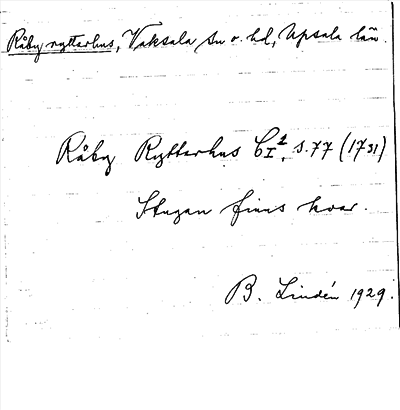 Råby ryttarhus, Vaksala sn o. hd, Upsala län.
Råby Ryttarhus C I², s. 77 (1731)
Stugan finns kvar.
B. Lindén 1929.